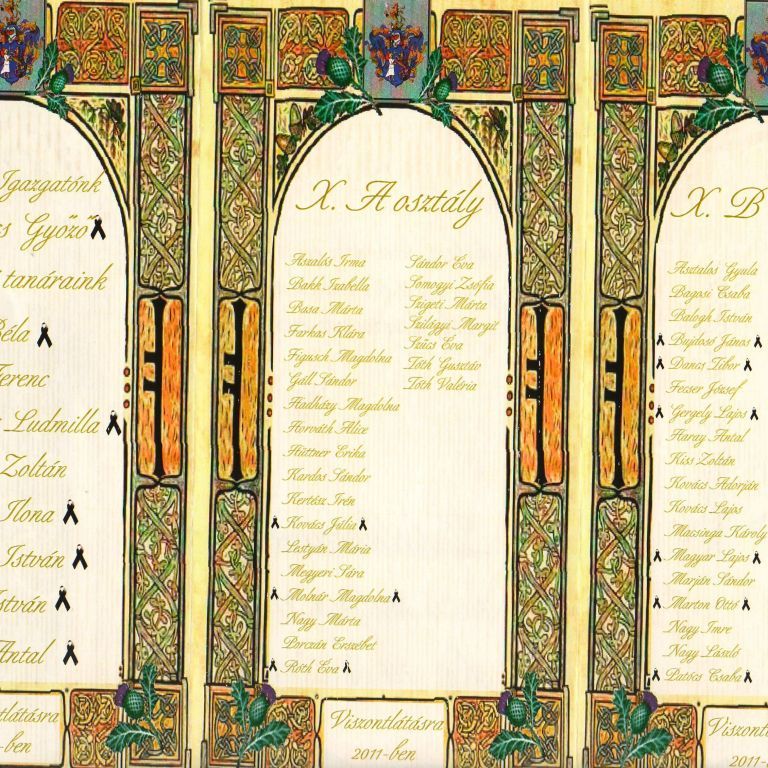 Igazgatónk
Győző
tanáraink
Béla
Ferenc
Ludmilla
Zoltán
Ilona
István
István
Antal
2011-ben
X. A osztály
Aszalós Irma
Bakk Izabella
Basa Márta
Farkas Klára
Figusch Magdolna
Gáll Sándor
Hadházy Magdolna
Horváth Alice
Hüttner Erika
Kardos Sándor
Kertész Irén
Kovács Júlia
Lestyán Mária
Megyeri Sára
Molnár Magdolna
Nagy Márta
Porczán Erzsébet
Róth Éva
Sándor Éva
Somogyi Zsófia
Szigeti Márta
Szilágyi Margit
Szűcs Éva
Tóth Gusztáv
Tóth Valéria
Viszontlátásra
2011-ben
X. B
Asztalos Gyula
Bagosi Csaba
Balogh István
Bujdosó János
Dancs Tibor
Fecser József
Gergely Lajos
Haray Antal
Kiss Zoltán
Kovács Adorján
Kovács Lajos
Macsinga Károly
Magyar Lajos
Marján Sándor
Marton Ottó
Nagy Imre
Nagy László
Patócs Csaba
2011-